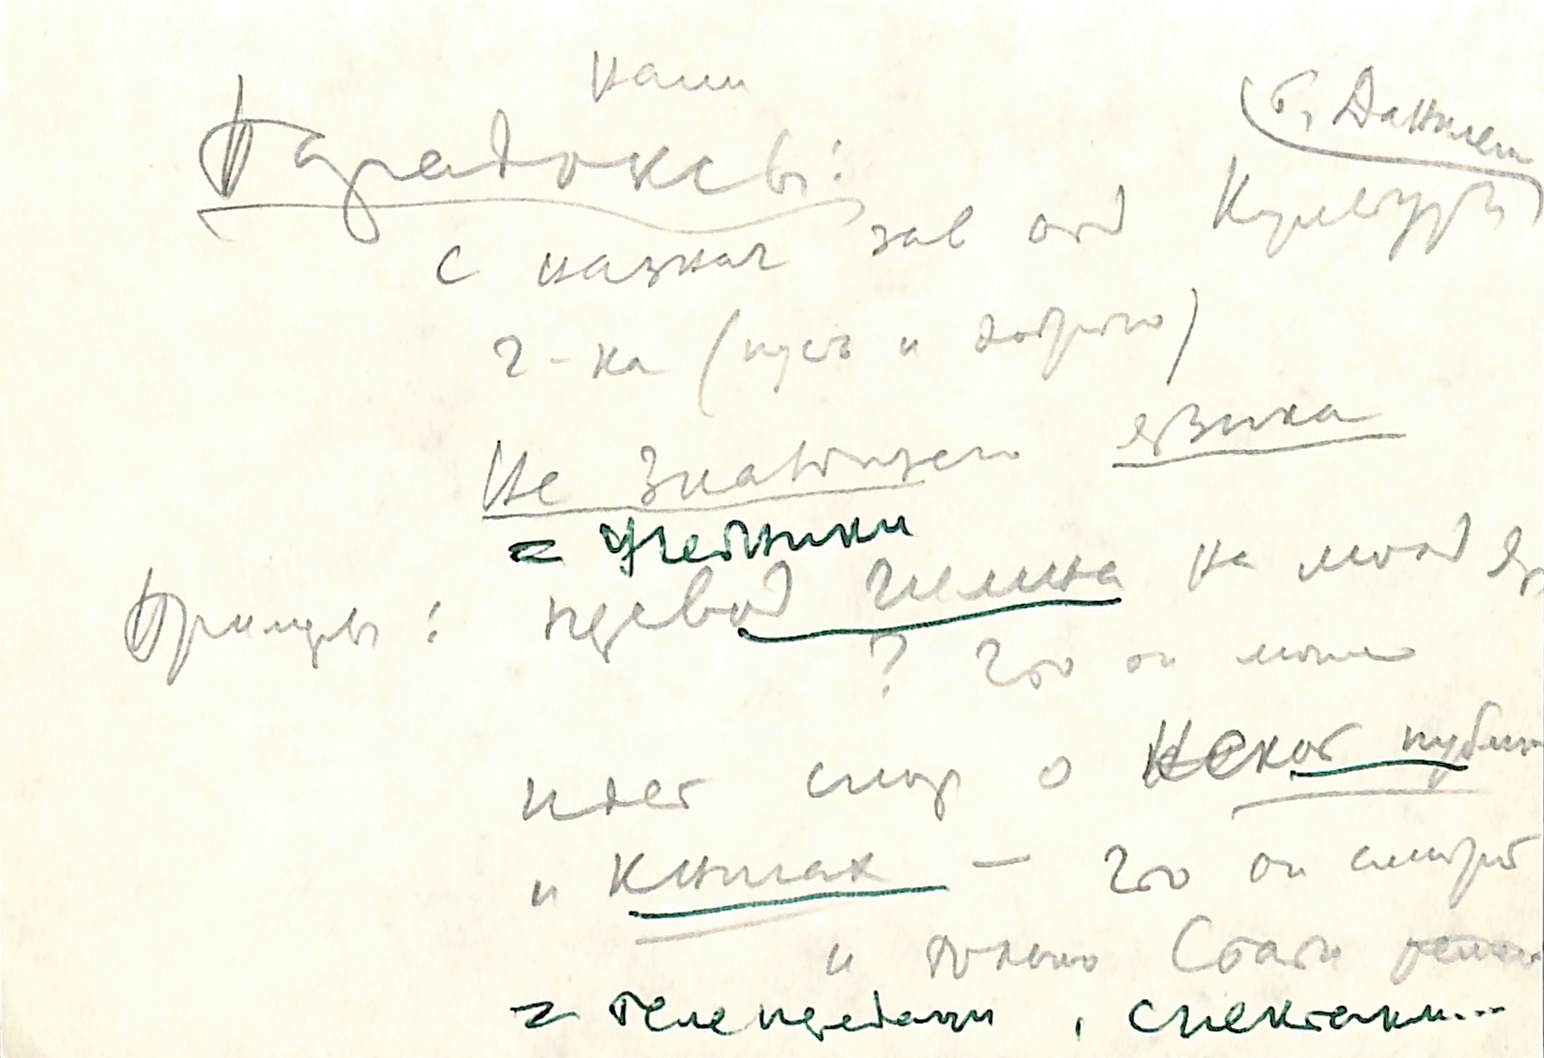 наши
Парадоксы:
(т. Данилет
с назнач зав отд Культуры)
ч-ка (пусть и доброго)
Не знающего языка
= Учебники
Примеры: перевод Гамлета на молд яз
? Что он может
идет спор о некот публик
и книгах — Что он смотрит
и только Стати
= телепередачи, спектакли...